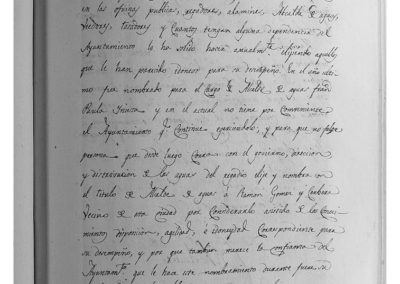 en las oficinas publicas, regadores, alamines, Alcalde de aguas,
Veedores, tasadores y Quantos tengan alguna dependencia del
Ayuntamiento, lo ha solido hacer anualmte eligiendo aquellos
que le han parecido idoneos para su desempeño. En el año ulti-
mo fue nombrado para el cargo de Alcalde de agua Franco
Paula y en el actual no tiene por Conveniente
el Ayuntamiento qe Continue exerciendolo, y para que no falte
persona que desde luego Corra con el govierno, direccion
y distribucion de las aguas del regadio elije y nombra con
el titulo de Alcalde de aguas a Ramon Gomez y
Vecino de esta ciudad por Considerarlo asistido de los Conoci-
mientos, disposicion, agilidad, e idoneidad Correspondiente para
su desempeño, y por que tambien merece la confianza del
Ayuntamto que le hace este nombramiento durante fuere su